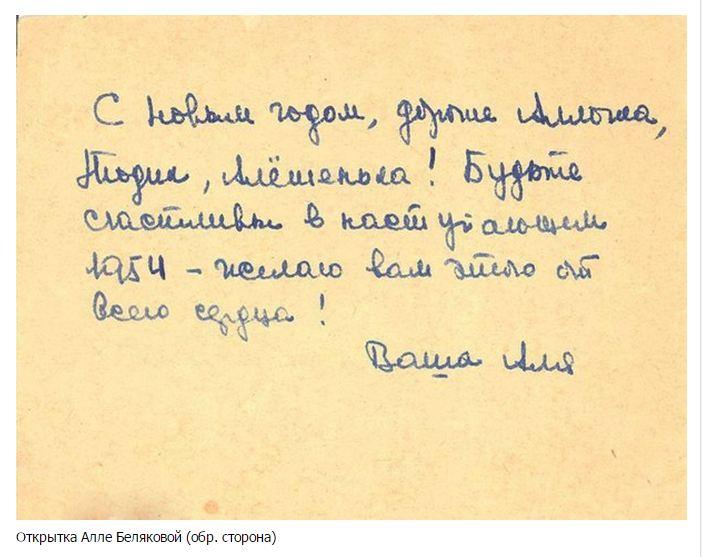 С новым годом, дорогие Аллочка,
Тъодик, Алёшенька! Будьте
счастливы в наступающем
1954 – желаю вам этого от
всего сердца!
Ваша Аля
Открытка Алле Беляковой (обр. сторона)